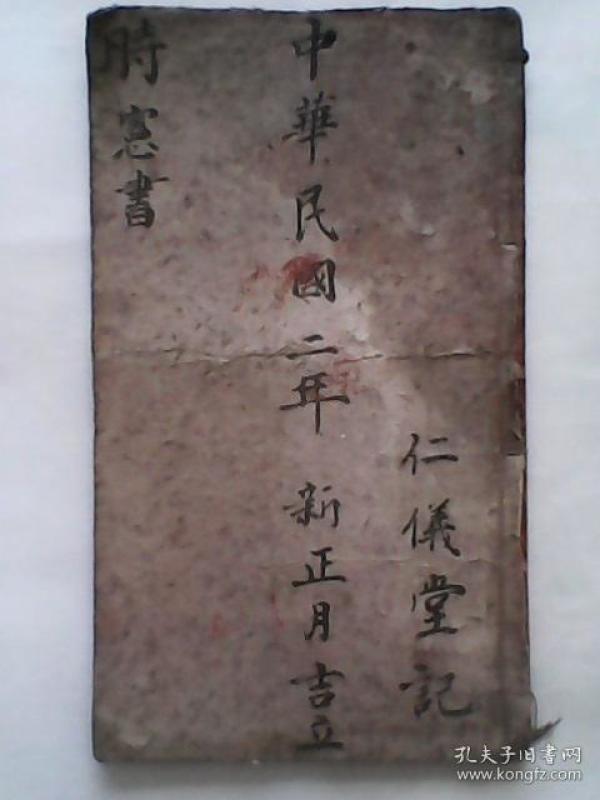 仁儀堂記
中華民國二年 新正月吉立
時憲書
孔夫子旧書网
www.kongfz.com